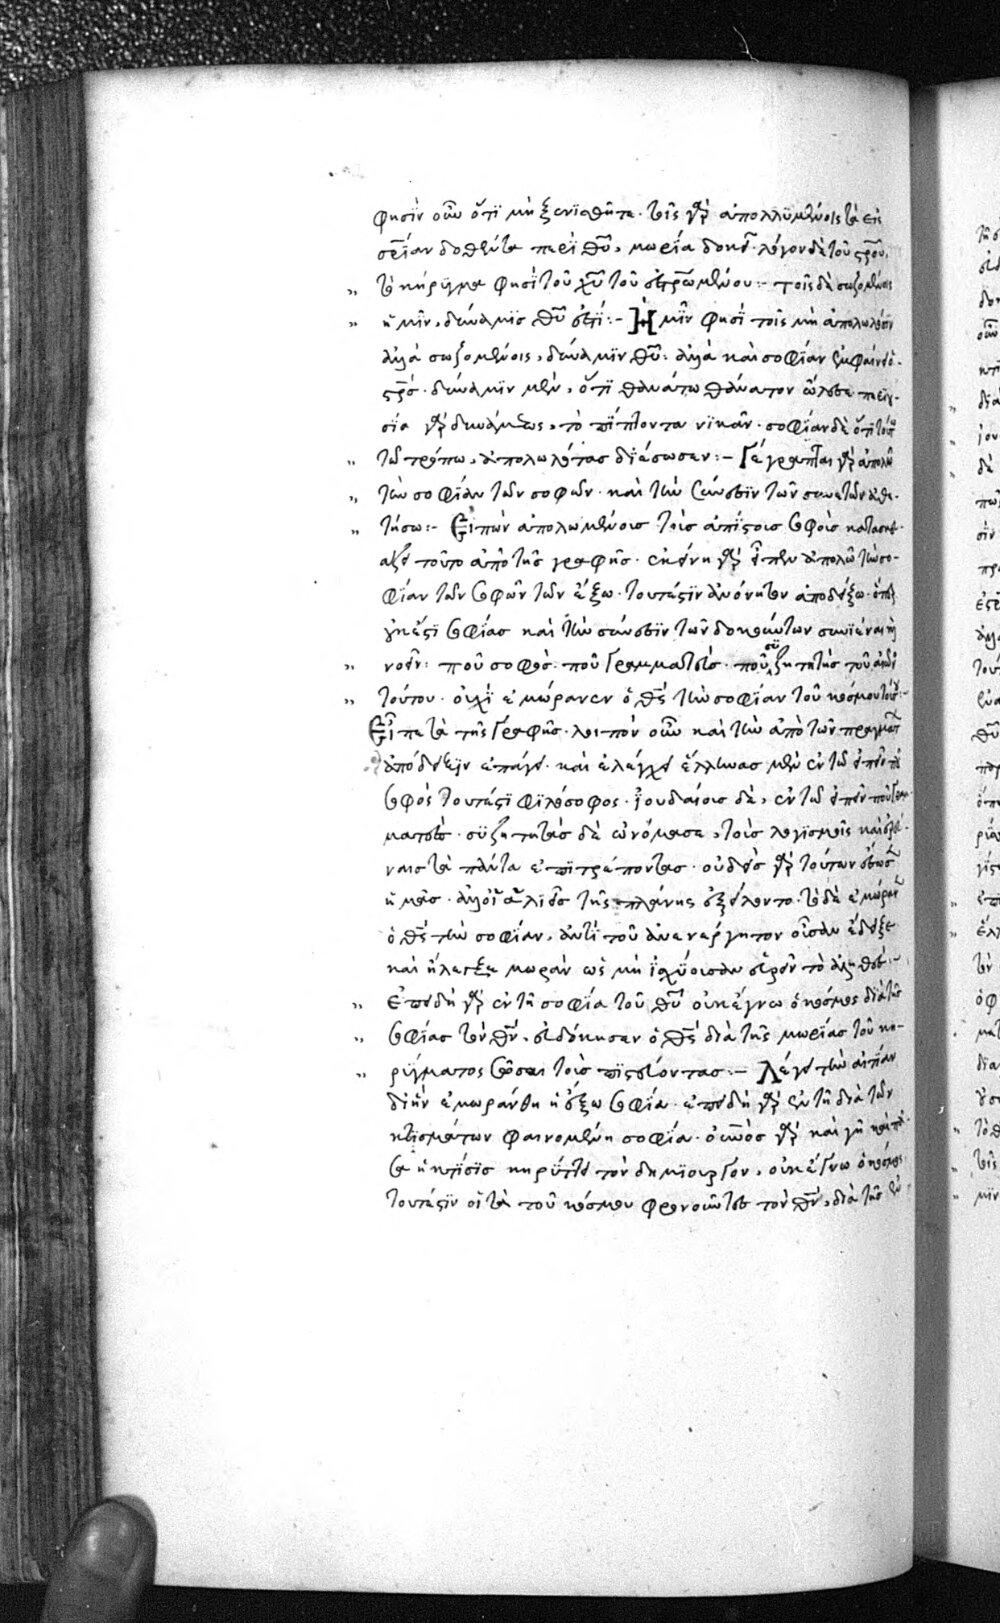 φησὶν οὖν ὅτι μὴ ξενισθῆτε· τοῖς γὰρ ἀπολλυμένοις τὰ εἰς
σρίαν δοθέντα παρὰ θυ, μωρία δοκεῖ· λόγον δὲ τοῦ στρου,
τὸ κήρυγμα φησὶ τοῦ χυ τοῦ ἐστρωμένου:- τοῖς δὲ σωζομένοις
ἡμῖν, δύναμις θυ ἐστι:- Ἡμῖν φησὶ τοῖς μὴ ἀπολωλόσιν
ἀλλὰ σωζομένοις, δύναμιν θυ· ἀλλὰ καὶ σοφίαν ἐμφαίνει ὁ
στρος· δύναμιν μὲν, ὅτι θανάτω θάνατον ὤλεσε· περιου
σία γὰρ δυνάμεως, τὸ πίπτοντα νικᾶν· σοφίαν δὲ ὅτι τοιούτω
τῶ τρόπω, ἀπολωλότας διέσωσεν:- Γέγραπται γὰρ ἀπολῶ
τὴν σοφίαν τῶν σοφῶν· καὶ τὴν σύνεσιν τῶν συνετῶν ἀθε-
τήσω:- Εἰπὼν ἀπολλυμένοις τοῖς ἀπίστοις σοφοῖς κατασκευ
άζει τοῦτο ἀπὸ τῆς γραφῆς· ἐκείνη γὰρ εἶπεν ἀπολῶ τὴν σο-
φίαν τῶν σοφῶν τῶν ἔξω· τουτέστιν ἀνόνητον ἀποδείξω·
σοφίας καὶ τὴν σύνεσιν τῶν δοκούντων συνιέναι ἢ
νοεῖν: ποῦ σοφός· ποῦ γραμματεύς· ποῦ συζητητὴς τοῦ αἰῶνος
τούτου· οὐχὶ ἐμώρανεν ὁ θς τὴν σοφίαν τοῦ κόσμου τούτου:-
Εἶπε τὰ τῆς γραφῆς· λοιπὸν οὖν καὶ τὴν ἀπὸ τῶν πραγμάτων
ἀπόδειξιν ἐπάγει· καὶ ἐλέγχει ἕλληνας μὲν ἐν τῶ εἰπεῖν ποῦ
σοφὸς τουτέστι φιλόσοφος· ἰουδαίοις δὲ, ἐν τῶ εἰπεῖν ποῦ γραμ
ματεύς· συζητητὰς δὲ ὠνόμασε, τοὺς λογισμοῖς καὶ ἐρεύ
ναις τὰ πάντα ἐπιτρέποντας· οὐδεὶς γὰρ τούτων ἔσωσεν
ἡμᾶς· ἀλλ' οἱ ἁλιεῖς τῆς πλάνης ἐξείλοντο· τὸ δὲ ἐμώρανεν
ὁ θς τὴν σοφίαν, ἀντὶ τοῦ ἀνενέργητον οὖσαν ἔδειξε
καὶ ἤλεγξε μωρὰν ὡς μὴ ἰσχύουσαν εὑρεῖν τὸ ἀληθές:-
Ἐπειδὴ γὰρ ἐν τῆ σοφία τοῦ θυ οὐκ ἔγνω ὁ κόσμος διὰ τῆς
σοφίας τὸν θν, εὐδόκησεν ὁ θς διὰ τῆς μωρίας τοῦ κη-
ρύγματος σῶσαι τοὺς πιστεύοντας:- Λέγει τὴν αἰτίαν
δι' ἣν ἐμωράνθη ἡ ἔξω σοφία· ἐπειδὴ γὰρ ἐν τῆ διὰ τῶν
κτισμάτων φαινομένη σοφία· ὁ οὐνος γὰρ καὶ γῆ καὶ πᾶ
σα ἡ κτίσις κηρύττει τὸν δημιουργὸν, οὐκ ἔγνω ὁ κόσμος
τουτέστιν οἱ τὰ τοῦ κόσμου φρονοῦντες τὸν θν, διὰ τῆς ἐν